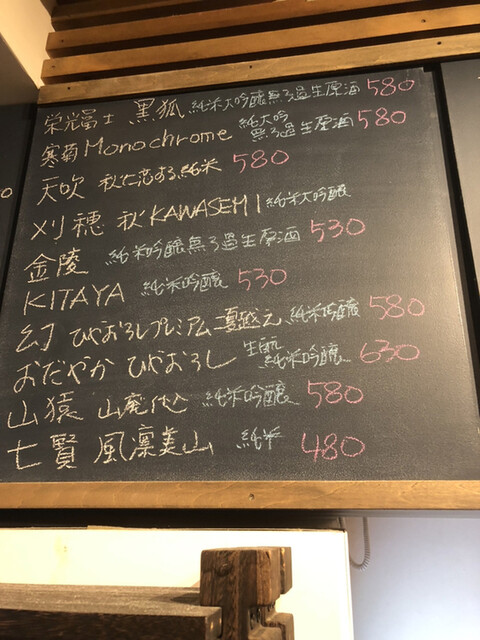 栄光冨士 黒狐 純米大吟醸無ろ過生原酒 580
寒菊 Monochrome 純大吟 無ろ過生原酒 580
天吹 秋に恋する純米 580
刈穂 秋KAWASEMI 純米大吟醸
金陵 純米吟醸無ろ過生原酒 530
KITAYA 純米吟醸 530
幻 ひやおろしプレミアム 夏越え 純米吟醸 580
おだやか ひやおろし 生酛 純米吟醸 630
山猿 山廃仕込 純米吟醸 580
七賢 風凛美山 純米 480